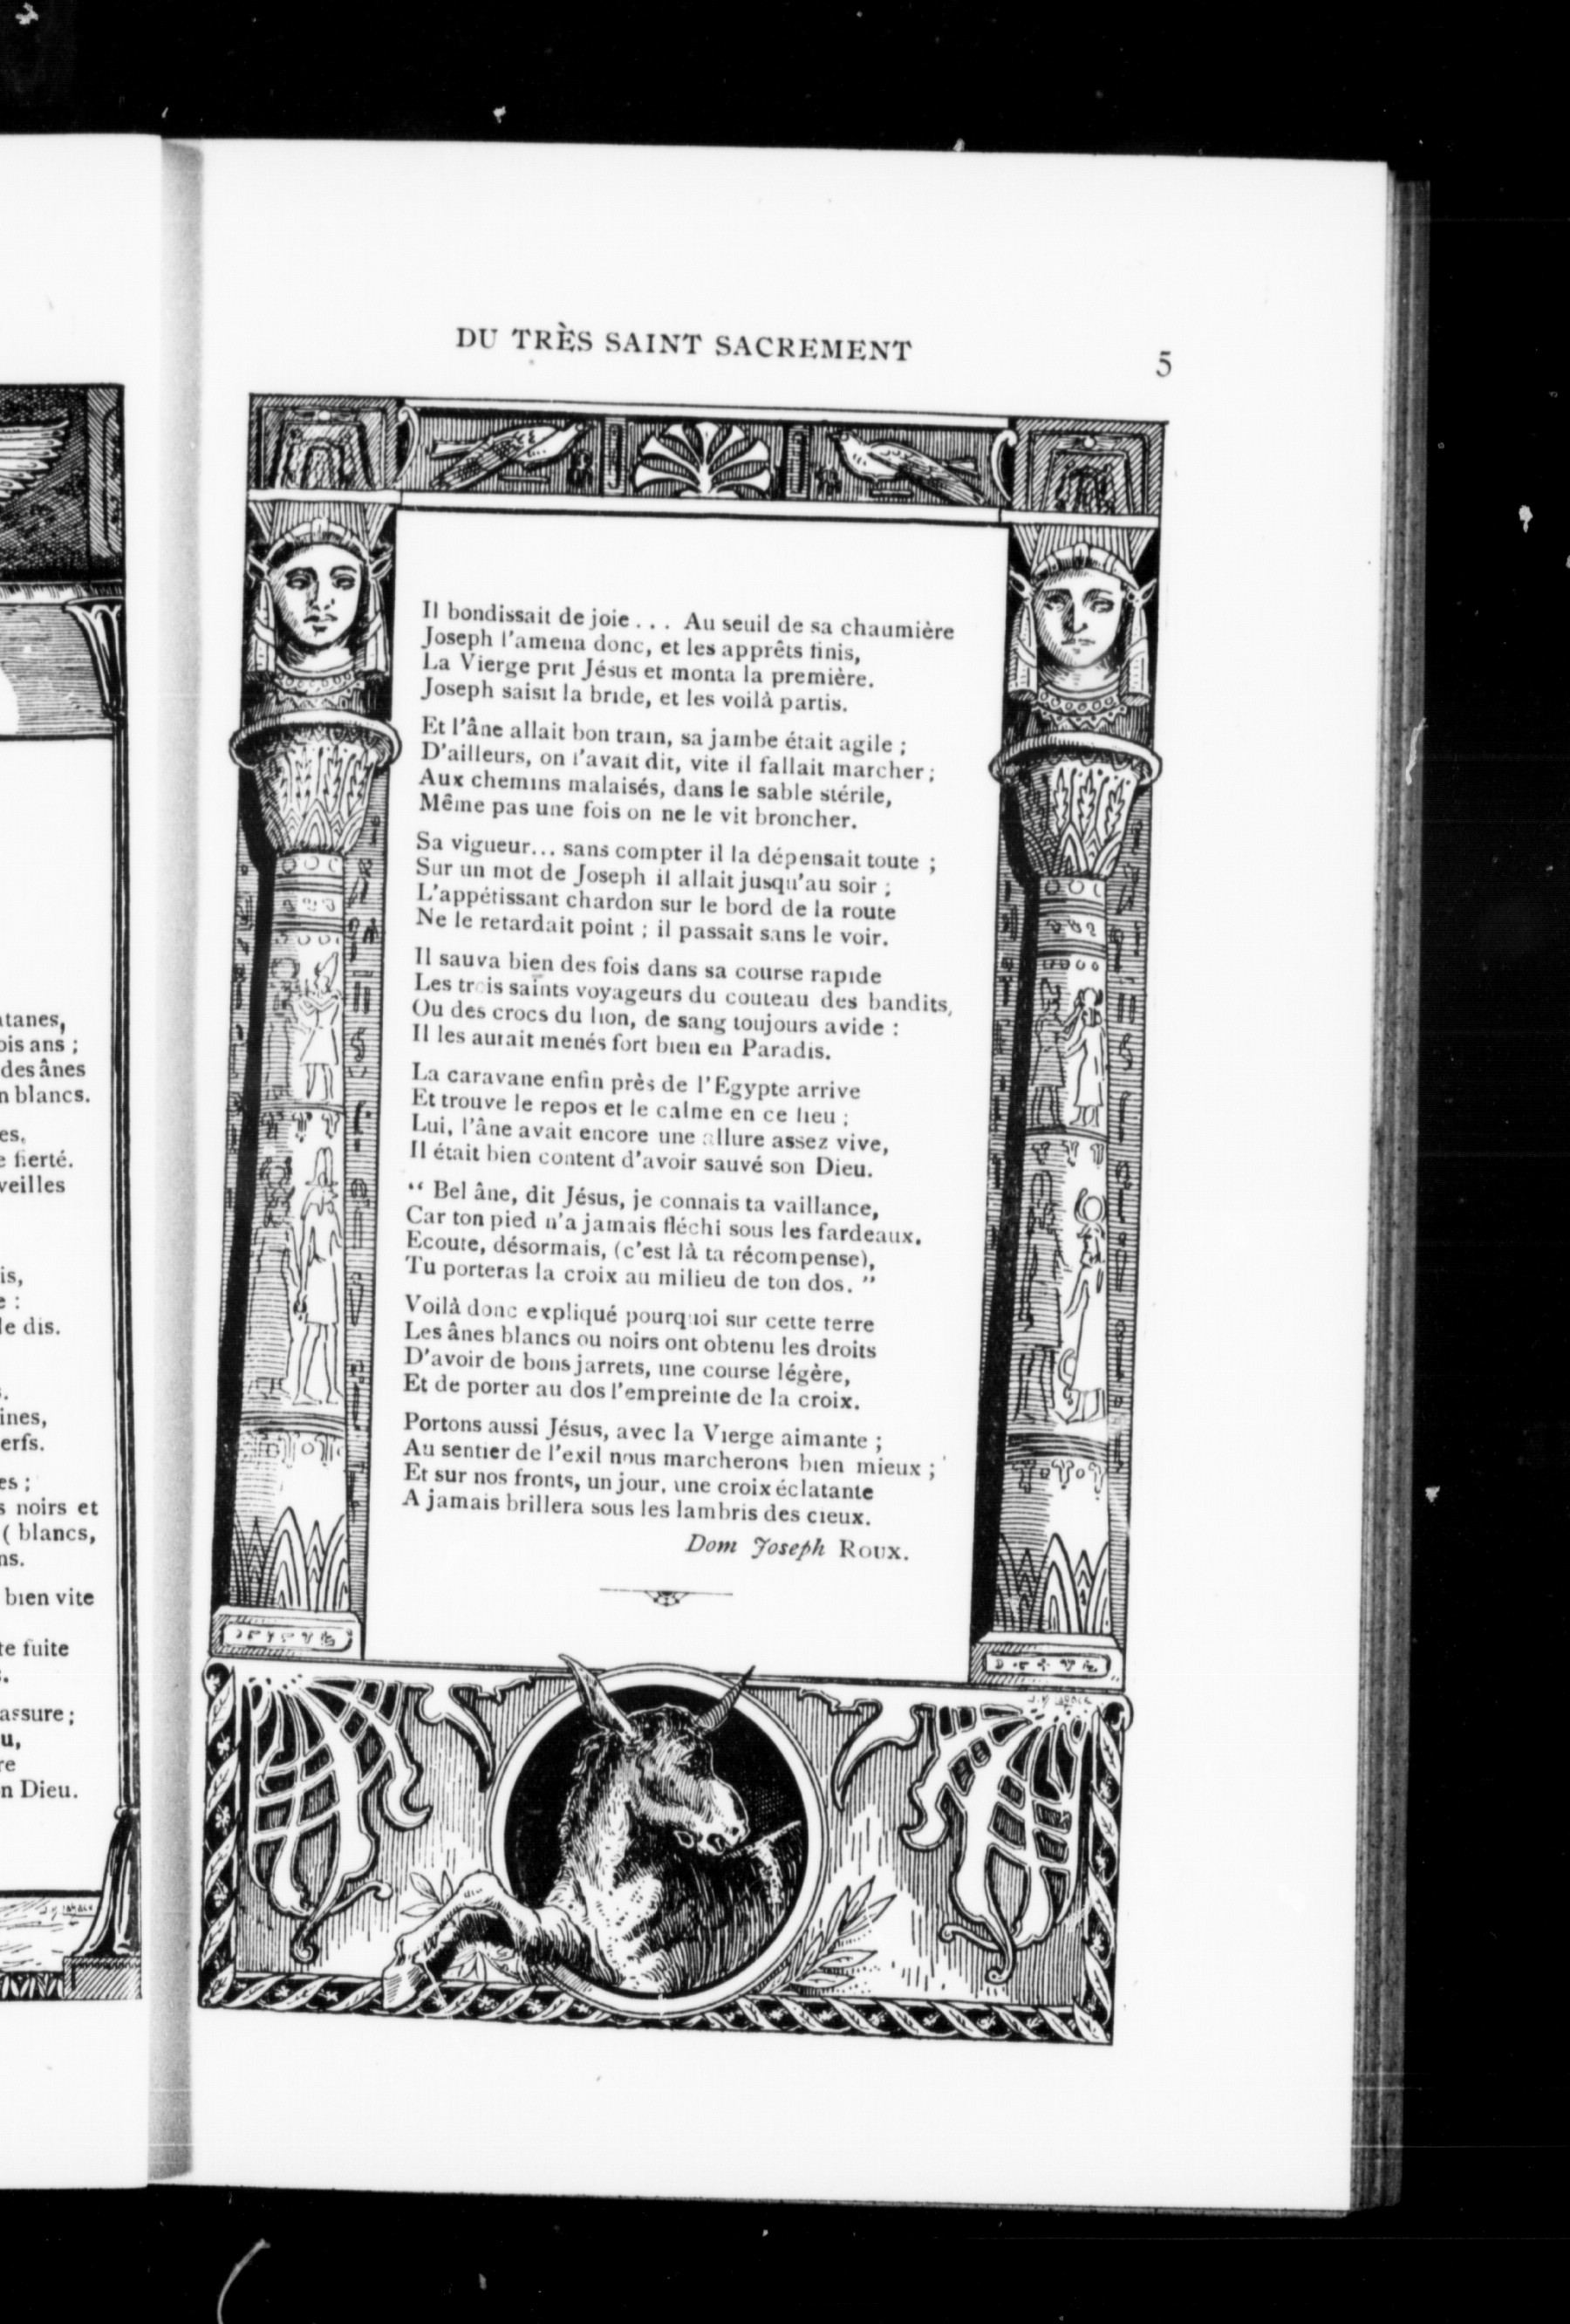 atanes,
ois ans ;
des ânes
n blancs.
es,
e fierté.
veilles
is,
e :
le dis.
s.
ines,
erfs.
es ;
s noirs et
( blancs,
ns.
bien vite
te fuite
s.
assure ;
u,
re
n Dieu.
DU TRÈS SAINT SACREMENT
5
Il bondissait de joie . . . Au seuil de sa chaumière
Joseph l'amena donc, et les apprêts finis,
La Vierge prit Jésus et monta la première.
Joseph saisit la bride, et les voilà partis.
Et l'âne allait bon train, sa jambe était agile ;
D'ailleurs, on l'avait dit, vite il fallait marcher ;
Aux chemins malaisés, dans le sable stérile,
Même pas une fois on ne le vit broncher.
Sa vigueur... sans compter il la dépensait toute ;
Sur un mot de Joseph il allait jusqu'au soir ;
L'appétissant chardon sur le bord de la route
Ne le retardait point ; il passait sans le voir.
Il sauva bien des fois dans sa course rapide
Les trois saints voyageurs du couteau des bandits,
Ou des crocs du lion, de sang toujours avide :
Il les aurait menés fort bien en Paradis.
La caravane enfin près de l'Egypte arrive
Et trouve le repos et le calme en ce lieu ;
Lui, l'âne avait encore une allure assez vive,
Il était bien content d'avoir sauvé son Dieu.
“ Bel âne, dit Jésus, je connais ta vaillance,
Car ton pied n'a jamais fléchi sous les fardeaux.
Ecoute, désormais, (c'est là ta récompense),
Tu porteras la croix au milieu de ton dos. ”
Voilà donc expliqué pourquoi sur cette terre
Les ânes blancs ou noirs ont obtenu les droits
D'avoir de bons jarrets, une course légère,
Et de porter au dos l'empreinte de la croix.
Portons aussi Jésus, avec la Vierge aimante ;
Au sentier de l'exil nous marcherons bien mieux ;
Et sur nos fronts, un jour, une croix éclatante
A jamais brillera sous les lambris des cieux.
Dom Joseph ROUX.